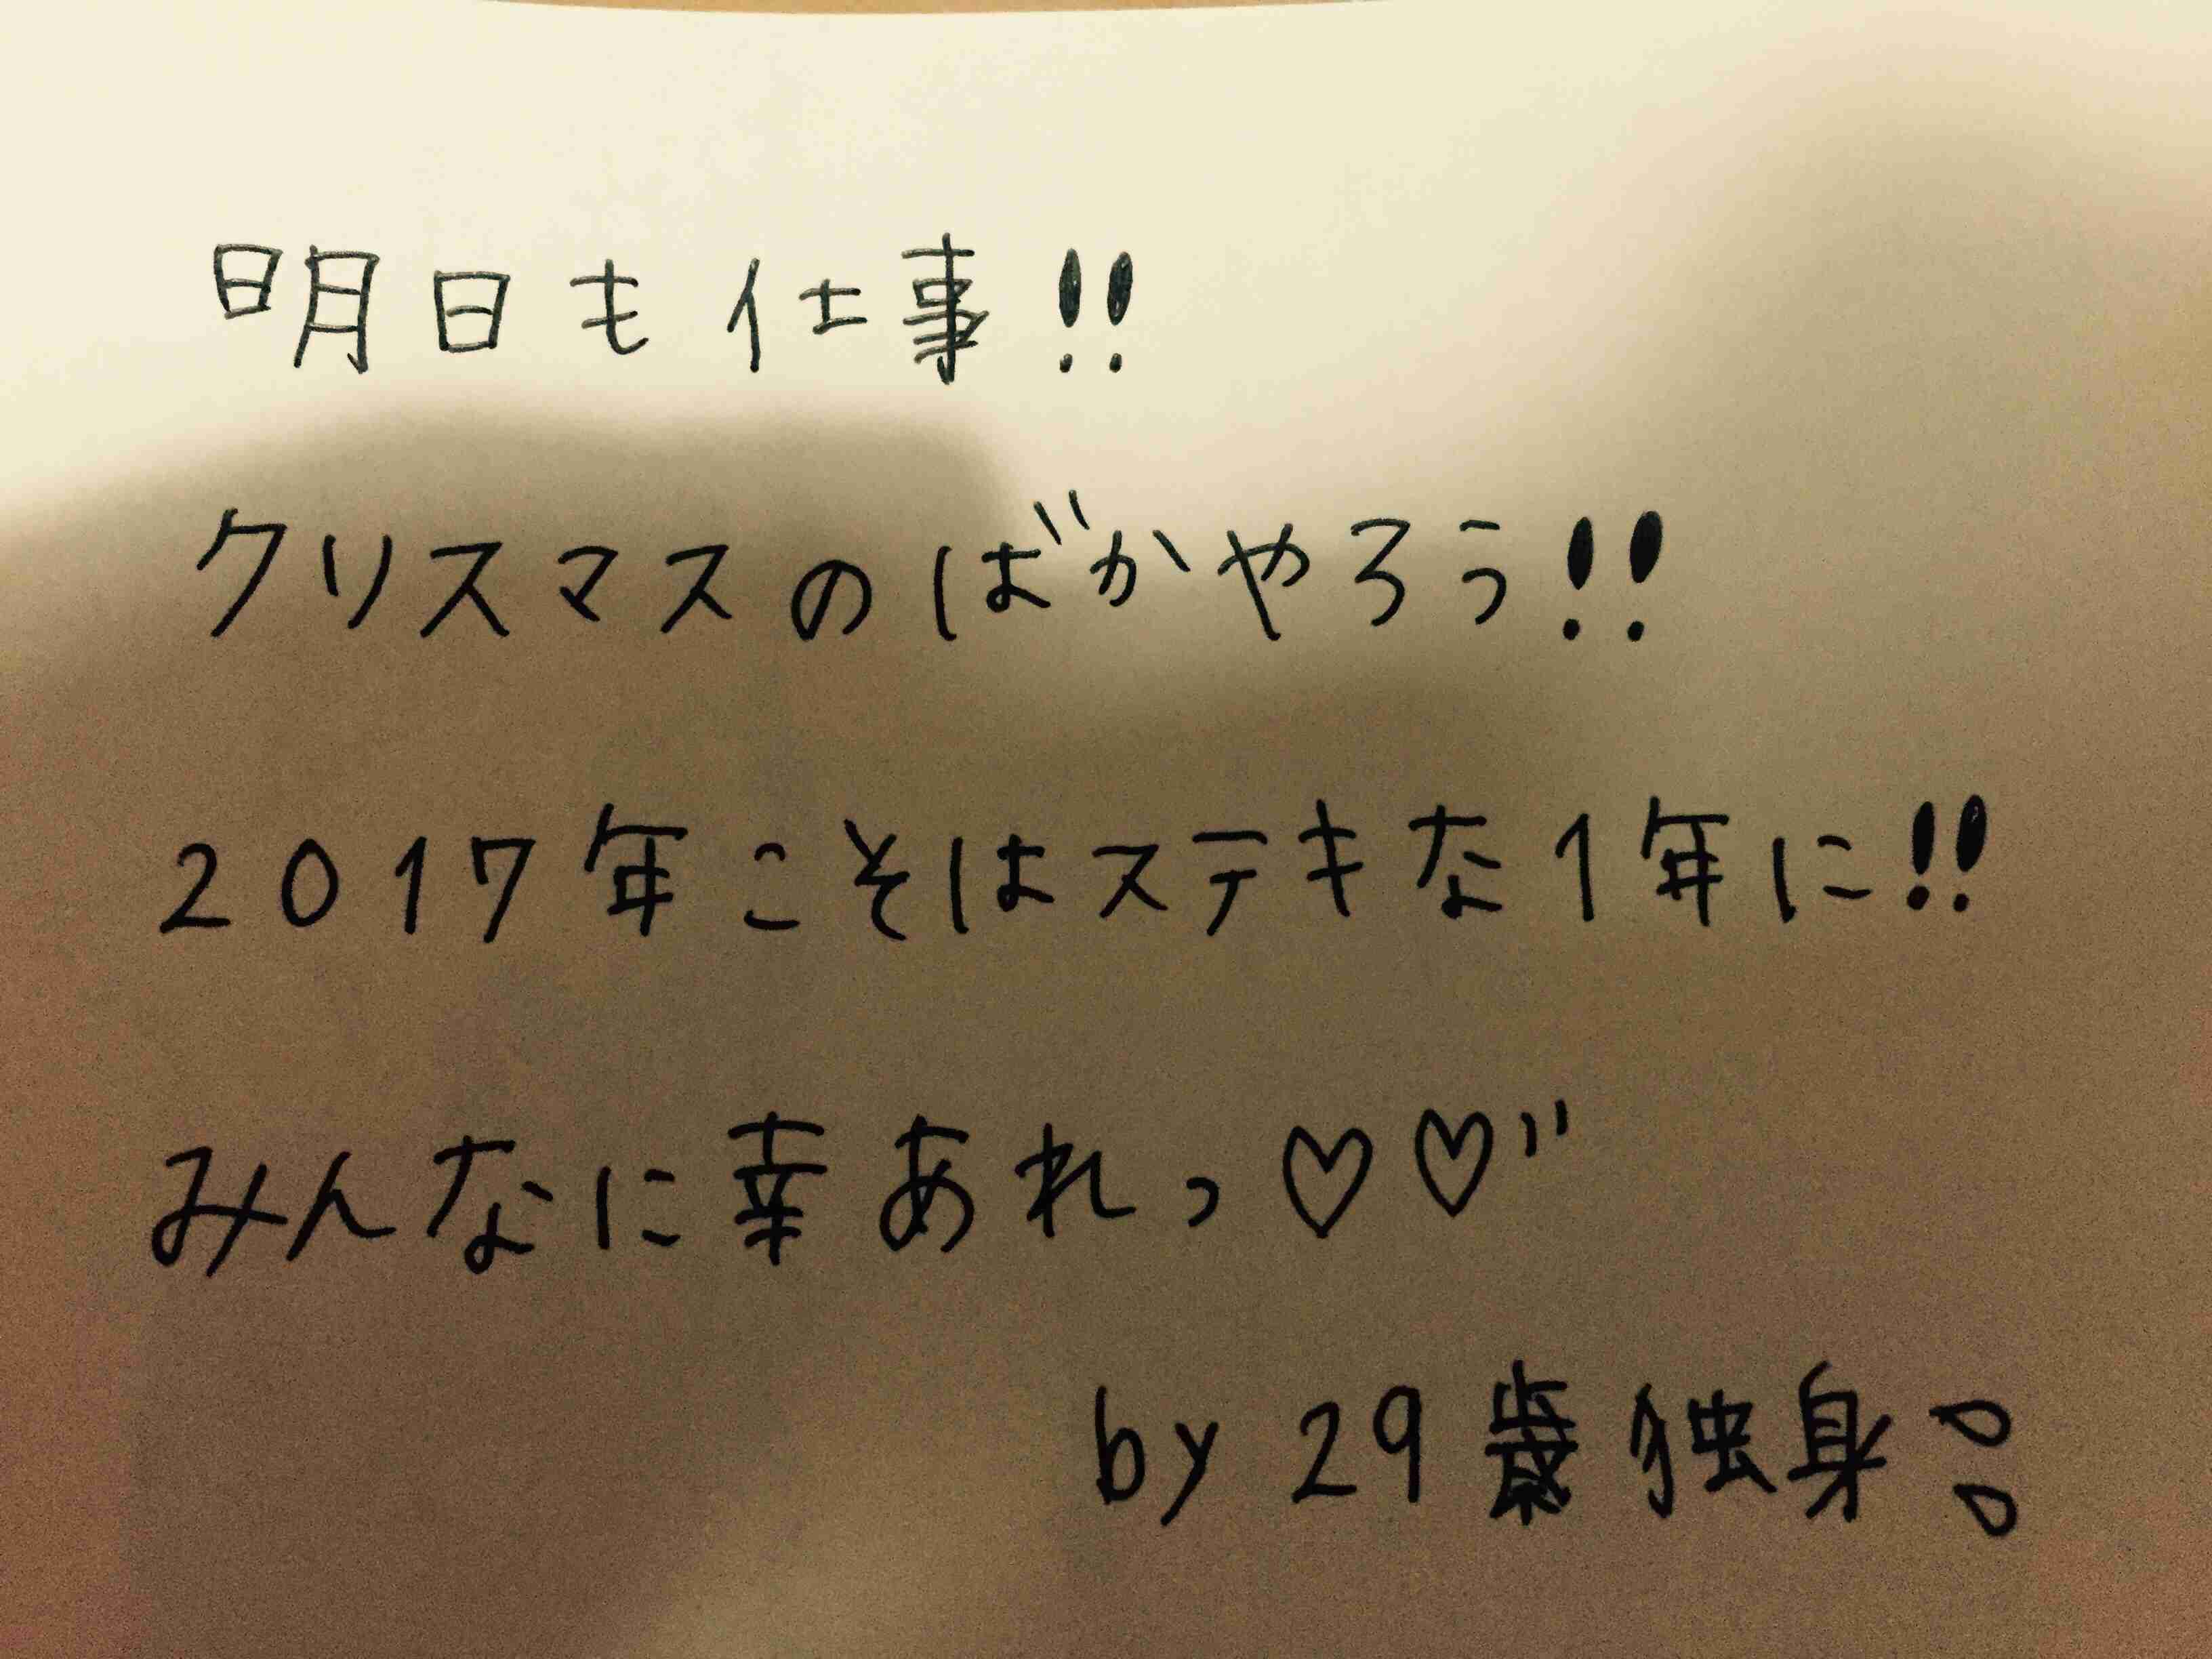 明日も仕事!!
クリスマスのばかやろう!!
2017年こそはステキな1年に!!
みんなに幸あれっ♡♡"
by 29歳独身